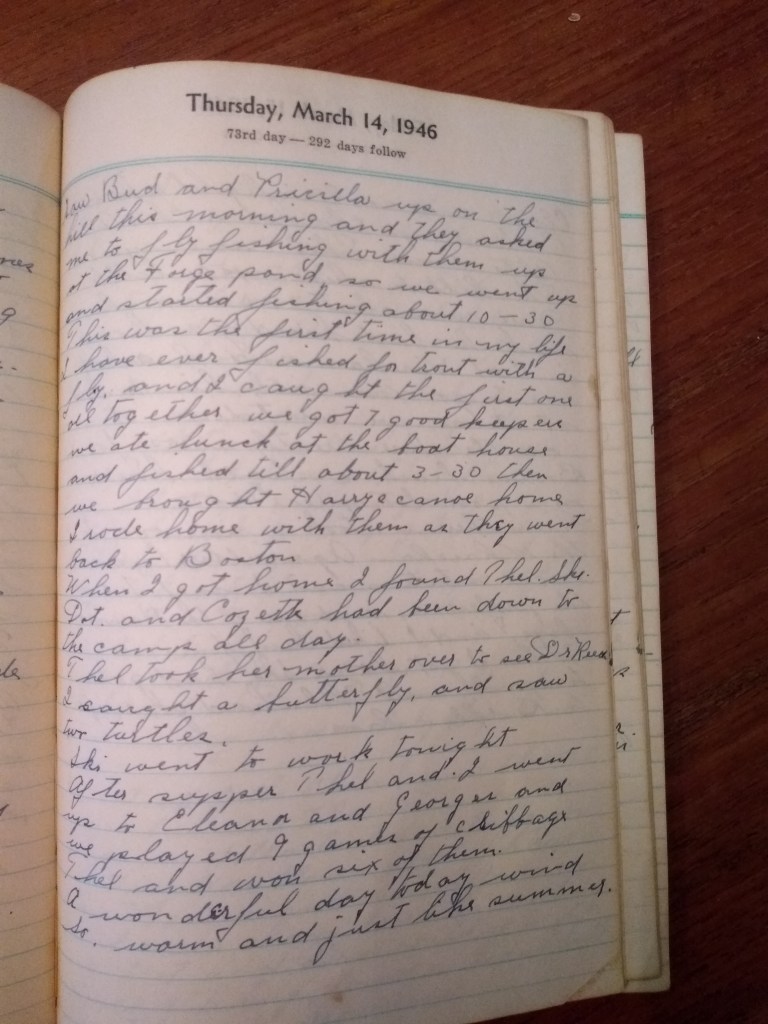 Thursday, March 14, 1946
73rd day — 292 days follow
Saw Bud and Pricilla up on the
hill this morning and they asked
me to fly fishing with them up
at the Forge pond so we went up
and started fishing about 10-30
This was the first time in my life
I have ever fished for trout with a
fly. and I caught the first one
all together we got 7 good keepers
we ate lunch at the boat house
and fished till about 3-30 then
we brought Harrys canoe home
I rode home with them as they went
back to Boston
When I got home I found Thel. Ski.
Dot. and Cozette had been down to
the camp all day.
Thel took her mother over to see Dr Reed
I caught a butterfly, and saw
two turtles.
Ski went to work tonight
After supper Thel and I went
up to Eleanor and Georges and
we played 9 games of cribbage
Thel and won six of them.
A wonderful day today wind
so. warm and just like summer.